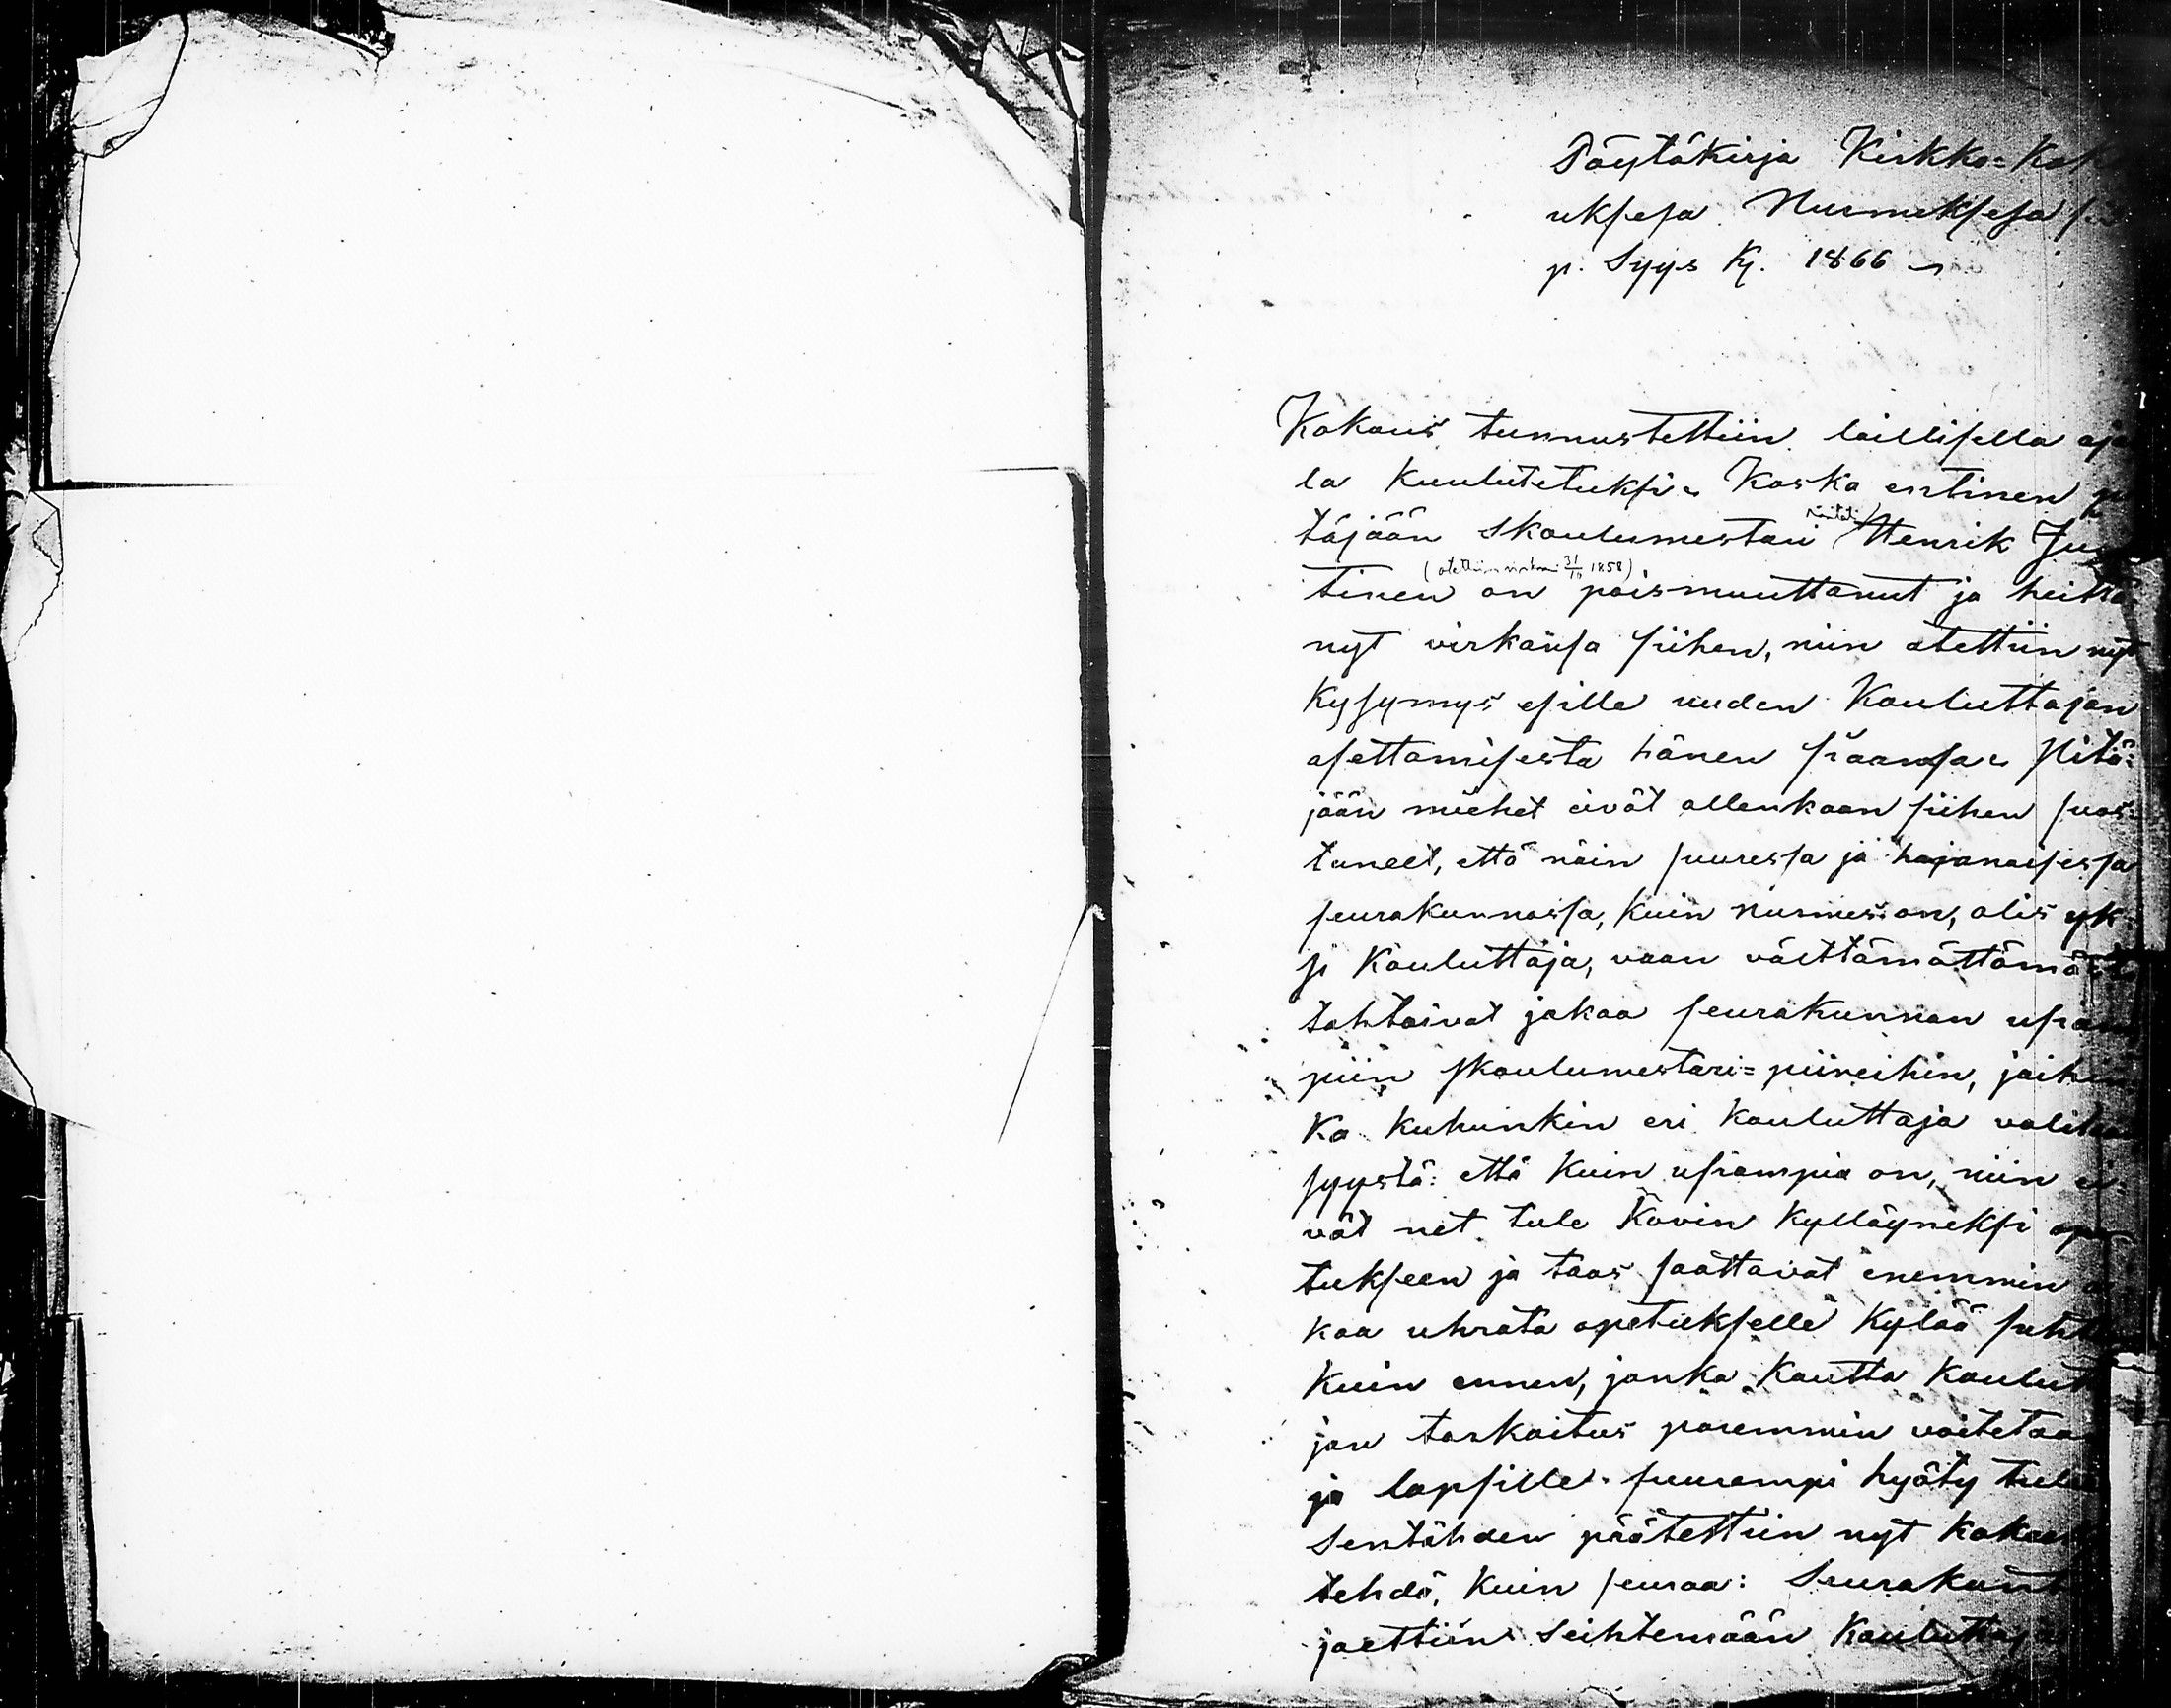 Pöytäkirja Kirkko=Kok
uksesa Nurmeksesa
p. Syys K. 1866
Kokous tunnustettiin laillisella aja
la kuulutetuksi. Koska entinen p
täjään skoulumestari Henrik Ju
(otettiin virkaan 31/10 1858)
tinen on poismuuttanut ja heittä
nyt virkansa siihen, niin otettiin nyt
kysymys esille uuden Kouluttajan
asettamisesta hänen siaansa. Pitä=
jään miehet eivät ollenkaan siihen suos=
tuneet, että näin suuressa ja hajanaisessa
seurakunnassa, kuin Nurmes on, olis yk=
si Kouluttaja, vaan välttämättömäst
tahtoivat jakaa seurakunnan usiam
piin skoulumestari=piireihin, joihin
ka kuhunkin eri kouluttaja valita
syystä: että kuin usiampia on, niin ei=
vät net tule kovin kylläyneksi ope
tukseen ja taas saattavat enemmin a
kaa uhrata opetukselle kylää suht
kuin ennen, jonka kautta Koulut
jan tarkoitus paremmin voitetaa
ja lapsille suurempi hyöty tule
Sentähden päätettiin nyt kokouk
tehdä, kuin seuraa: Seurakunt
jaettiin Seihtemään Kouluttaja